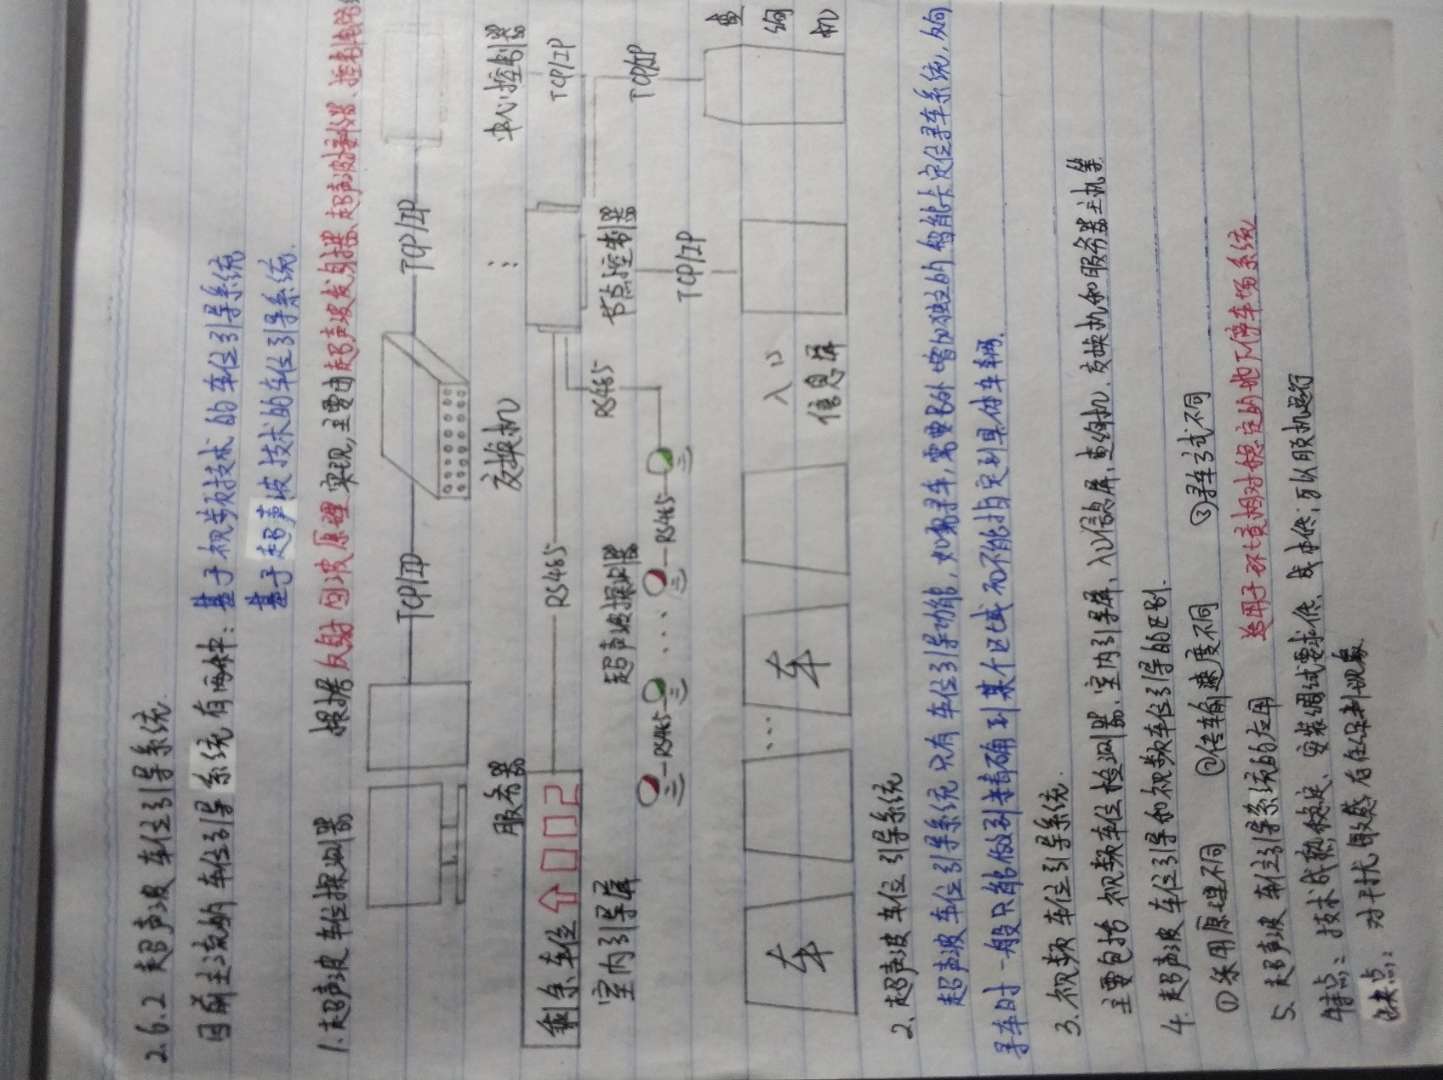 2.6.2 超声波车位引导系统
目前主流的车位引导系统有两种：基于视频技术的车位引导系统
基于超声波技术的车位引导系统.
1.超声波车位探测器 根据反射回波原理实现,主要由超声波发射器、超声波接收器、控制电路
TCP/IP TCP/IP
服务器 交换机 中心控制器
剩余车位 0002 RS485 TCP/IP
室内引导屏 超声波探测器 RS485 节点控制器 TCP/IP
RS485 RS485 TCP/IP
车 … 车 入口信息屏 查询机
2.超声波车位引导系统
超声波车位引导系统只有车位引导功能,如需寻车,需要另外增加独立的智能卡定位寻车系统,反向
寻车时一般只能做到精确到某个区域而不能指定到具体车辆.
3.视频车位引导系统
主要包括视频车位检测器、室内引导屏、入口信息屏,查询机、交换机和服务器主机等
4.超声波车位引导和视频车位引导的区别.
①采用原理不同 ②传输速度不同 ③寻车方式不同
5.超声波车位引导系统的应用 适用于环境相对稳定的地下停车场系统
特点：技术成熟,稳定、安装调试要求低、成本低；可以脱机运行
缺点：对干扰敏感存在误判现象